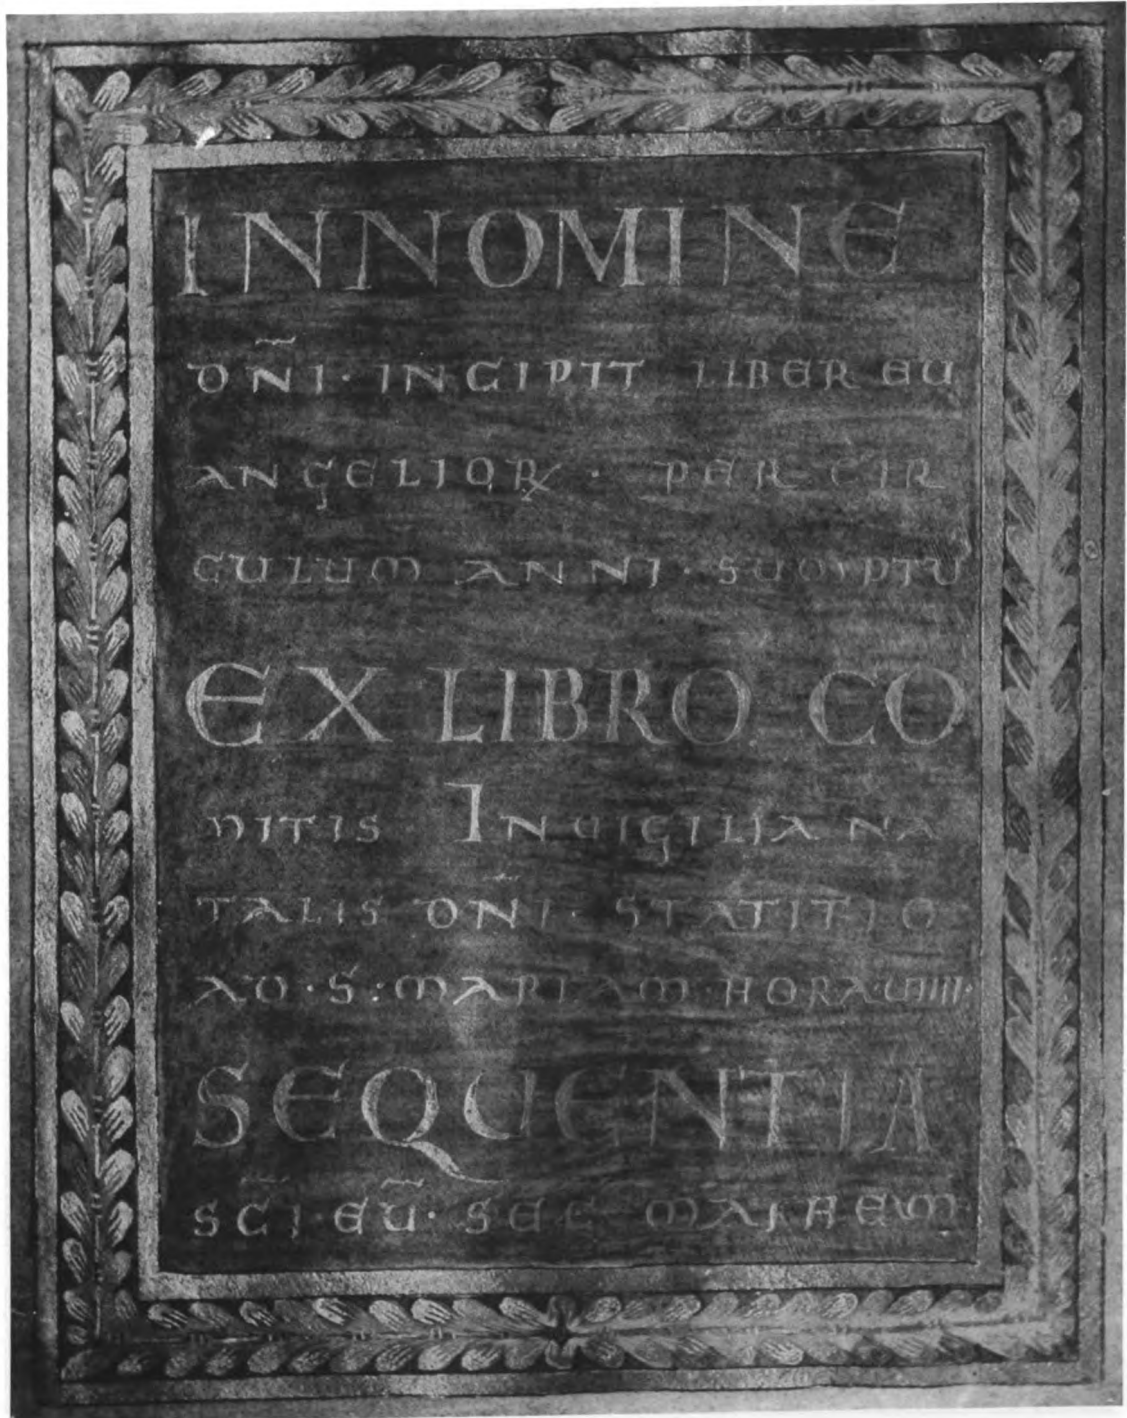 INNOMINE
DÑI · INCIPIT LIBER EU
ANGELIORꝜ · PER CIR
CULUM ANNI · SUMPTU
EX LIBRO CO
MITIS INUIGILIA NA
TALIS DÑI · STATITIO
AD · S : MARIAM · HORA · UIIII ·
SEQUENTIA
SC̃I · EŨ · SEC MATHEUM ·